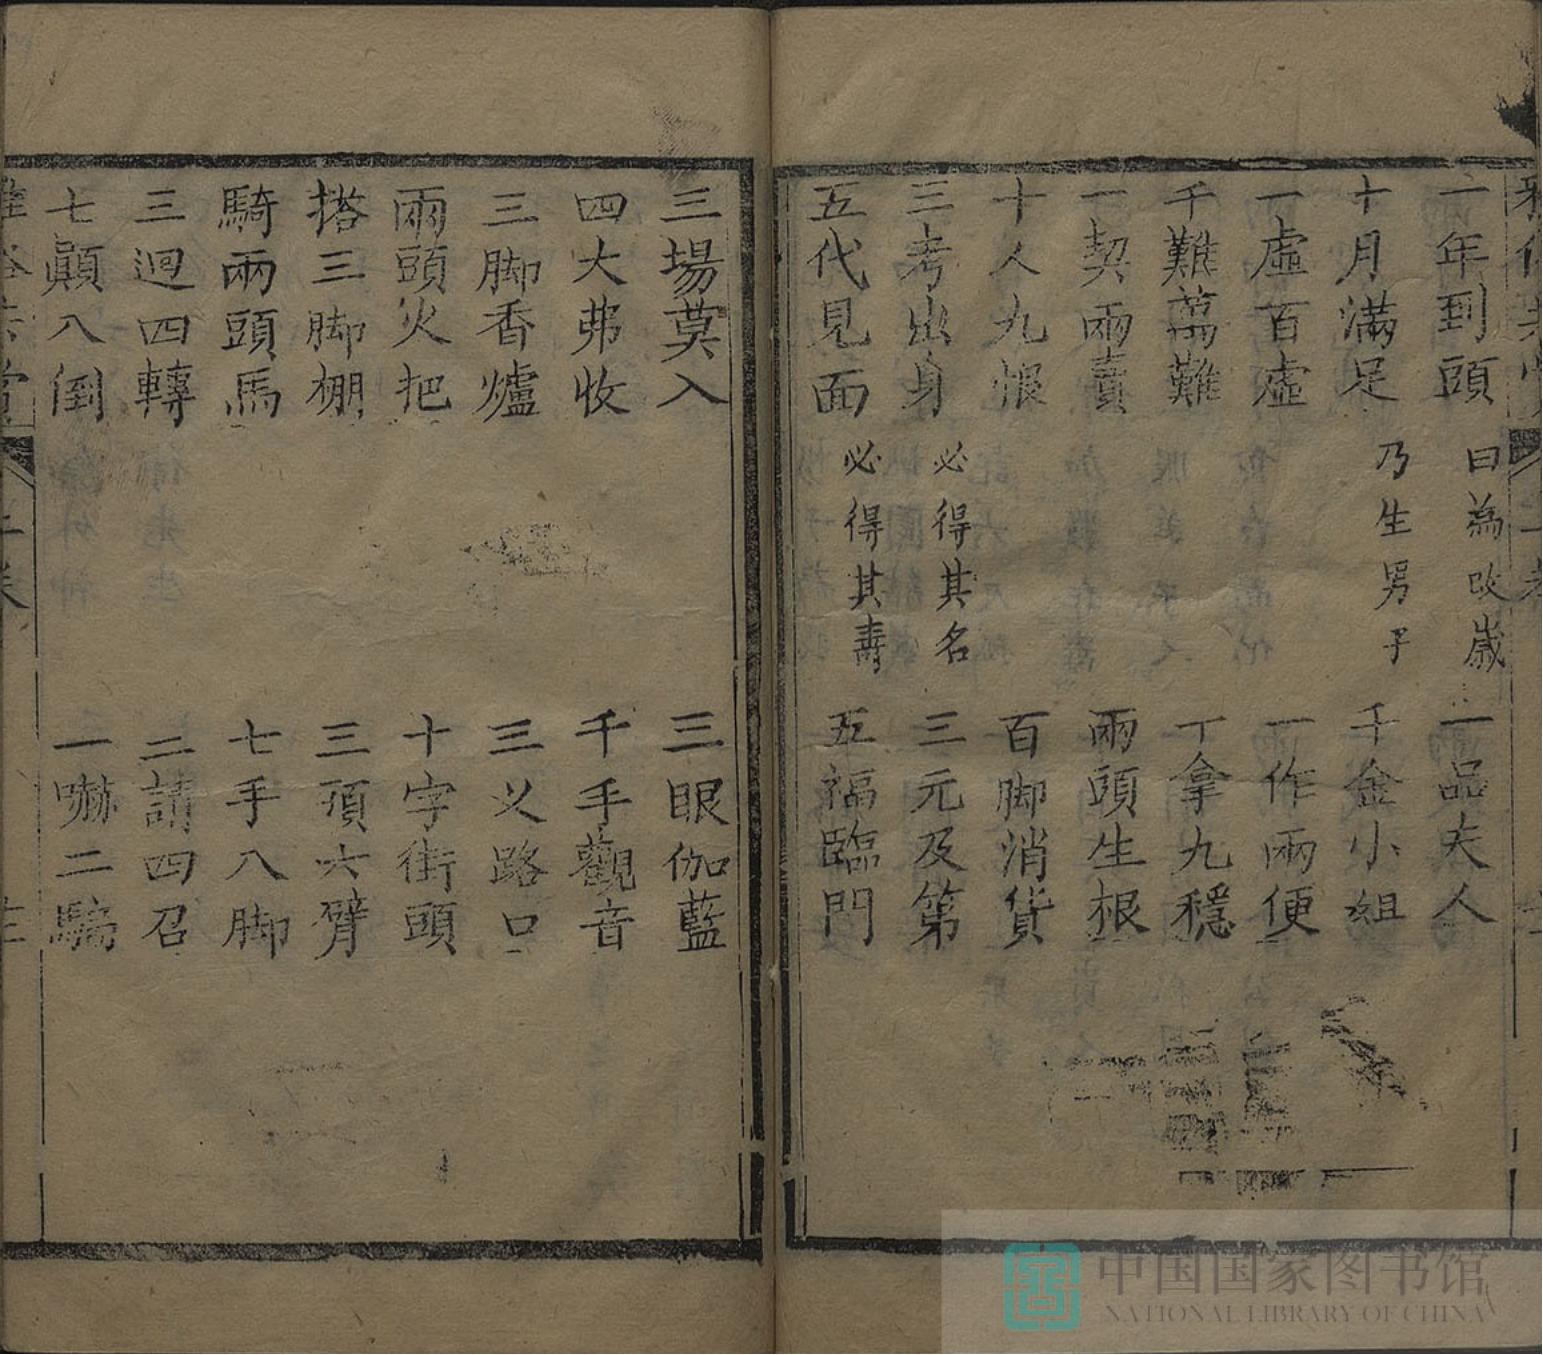 一年到頭 曰為改歲 一品夫人
十月滿足 乃生男子 千金小姐
一虛百虛 一作兩便
千難萬難 丅拿九穩
一契兩賣 兩頭生根
十人九恨 百脚消貨
三考出身 必得其名 三元及第
五代見面 必得其壽 五福臨門
三場莫入 三眼伽藍
四大弗收 千手觀音
三脚香爐 三义路口
兩頭火把 十字街頭
搭三脚棚 三頭六臂
騎兩頭馬 七手八脚
三迴四轉 二請四召
七顛八倒 一嚇二騙
中国国家图书馆
NATIONAL LIBRARY OF CHINA